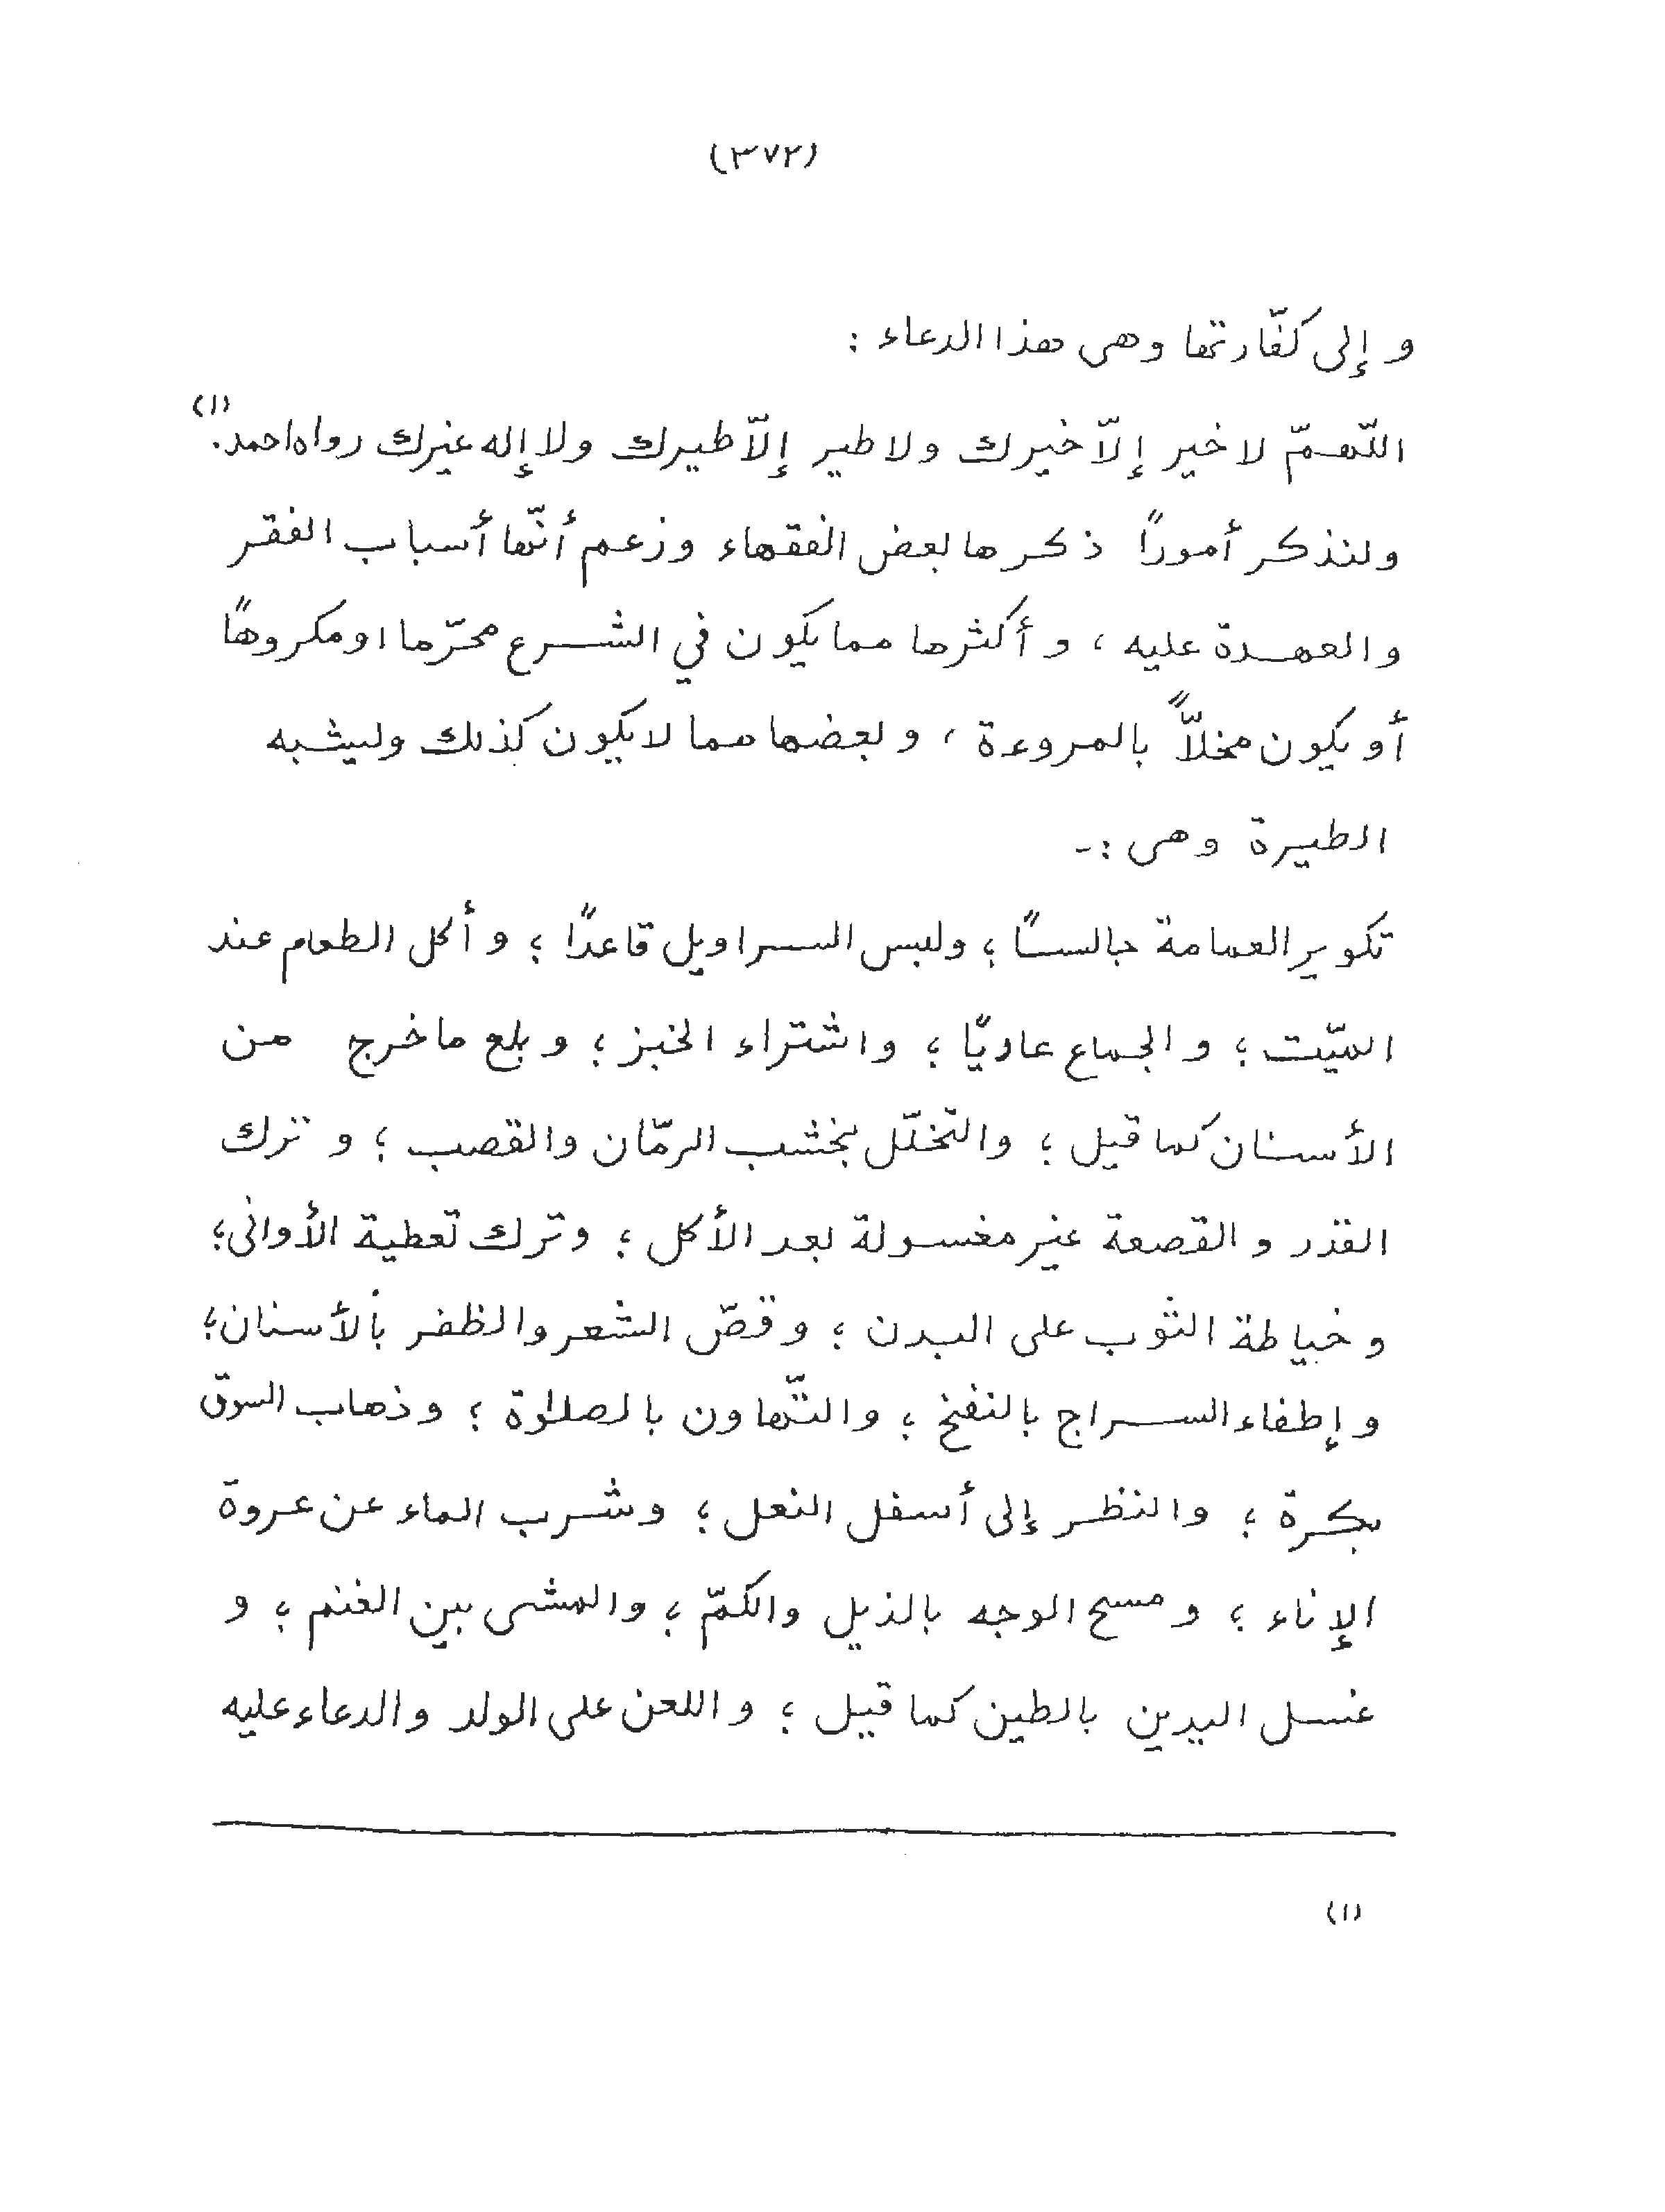 (٣٧٢)
و إلى كفّارتها وهي هذا الدعاء :
اللّهمّ لا خير إلاّ خيرك ولا طير إلاّ طيرك ولا إله غيرك رواه احمد.(١)
ولنذكر أموراً ذكرها بعض الفقهاء وزعم أنّها أسباب الفقر
والعهدة عليه ، و أكثرها مما يكون في الشرع محرّما او مكروهاً
أو يكون مخلاًّ بالمروءة ، و بعضها مما لا يكون كذلك وليشبه
الطيرة وهى :-
تكوير العمامة جالساً ؛ ولبس السراويل قاعدًا ؛ و أكل الطعام عند
الميّت ؛ و الجماع عاريًا ؛ واشتراء الخبز ؛ و بلع ما خرج من
الأسنان كما قيل ؛ والتّخلّل بخشب الرمّان والقصب ؛ و ترك
القدر و القصعة غير مغسولة بعد الأكل ؛ وترك تعطية الأوانى؛
و خياطة الثوب على البدن ؛ وقصّ الشعر والظفر بألأسنان؛
و إطفاء السراج بالنفخ ؛ والتّهاون بالصلوة ؛ وذهاب السوق
بكرة ؛ والنظر إلى أسفل النعل ؛ وشرب الماء عن عروة
الإناء ؛ و مسح الوجه بالذيل والكمّ ؛ والمشى بين الغنم ؛ و
غسل اليدين بالطين كما قيل ؛ و اللعن على الولد والدعاء عليه
(١)